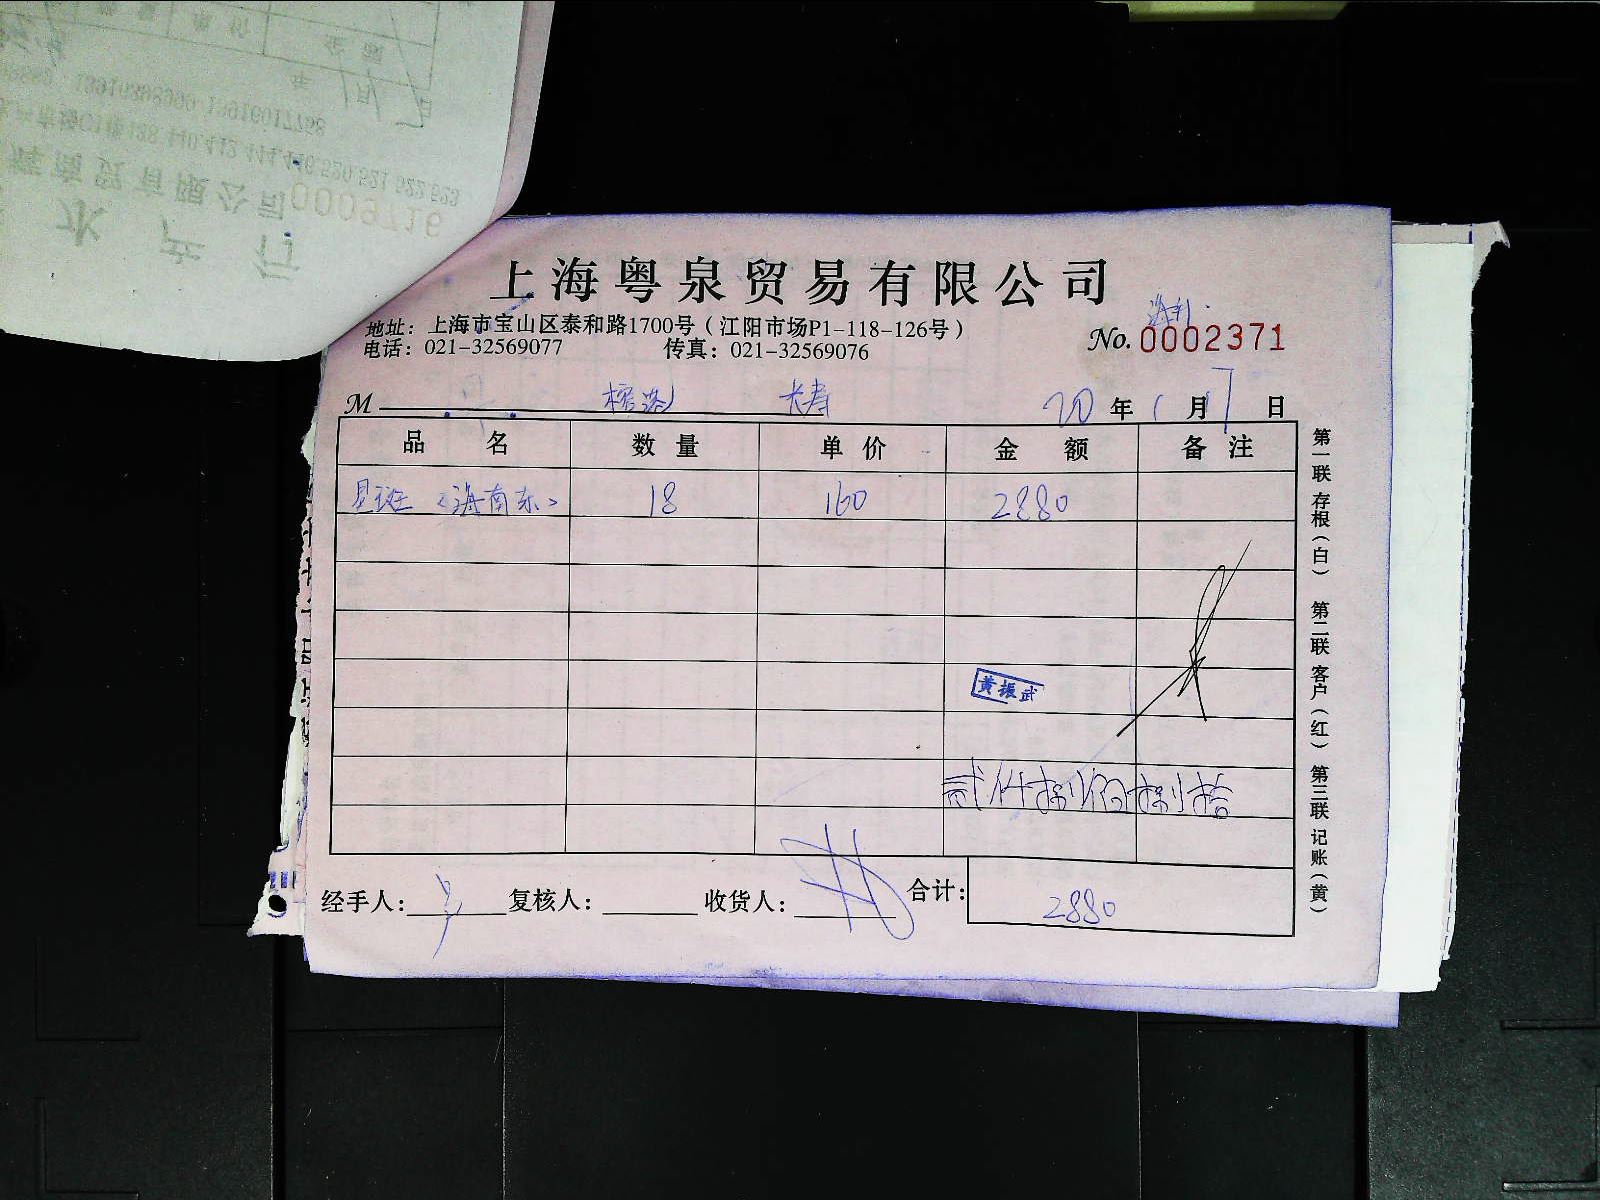 上海粤泉贸易有限公司
地址：上海市宝山区泰和路1700号（江阳市场P1-118-126号）
电话：021-32569077 传真：021-32569076
No. 0002371
M 长寿 20年1月17日
品 名 数 量 单 价 金 额 备 注
星斑（海南东） 18 160 2880
黄振武
贰仟捌佰捌拾
经手人： 复核人： 收货人： 合计： 2880
第一联 存根（白） 第二联 客户（红） 第三联 记账（黄）
水 产 行
商贸有限公司 0009716
年 1月17日
金 额
单 价